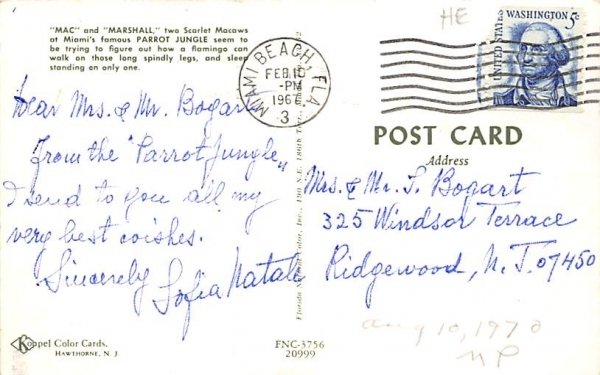 "MAC" and "MARSHALL," two Scarlet Macaws
at Miami's famous PARROT JUNGLE seem to
be trying to figure out how a flamingo can
walk on those long spindly legs, and sleep
standing on only one.
HE
UNITED STATES
WASHINGTON 5c
MIAMI BEACH, FLA
FEB 10
-PM
3
Dear Mrs. & Mr. Bogart
From the "Parrot Jungle"
I send to you all my
very best wishes.
Sincerely
Sofia Natale
POST CARD
Address
Mrs. & Mr. T. Bogart
325 Windsor Terrace
Ridgewood, N. J. 07450
Aug 10, 1970
NP
Koppel Color Cards.
HAWTHORNE, N. J.
FNC-3756
20999